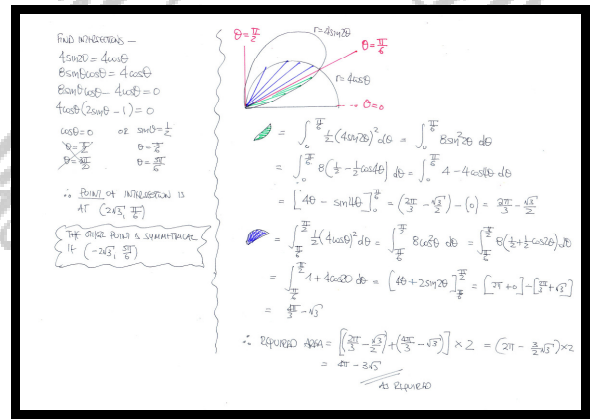 FIND INTERSECTIONS —
4sin2θ = 4cosθ
8sinθcosθ = 4cosθ
8sinθcosθ - 4cosθ = 0
4cosθ(2sinθ - 1) = 0
cosθ = 0 OR sinθ = 1/2
θ = π/2 θ = π/6
θ = 3π/2 θ = 5π/6
∴ POINT OF INTERSECTION IS
AT (2√3, π/6)
THE OTHER POINT IS SYMMETRICAL
IE (-2√3, 5π/6)
θ = π/2
r = 4sin2θ
θ = π/6
r = 4cosθ
θ = 0
= ∫₀^(π/6) 1/2 (4sin2θ)² dθ = ∫₀^(π/6) 8sin²2θ dθ
= ∫₀^(π/6) 8(1/2 - 1/2cos4θ) dθ = ∫₀^(π/6) 4 - 4cos4θ dθ
= [4θ - sin4θ]₀^(π/6) = (2π/3 - √3/2) - (0) = 2π/3 - √3/2
= ∫_(π/6)^(π/2) 1/2 (4cosθ)² dθ = ∫_(π/6)^(π/2) 8cos²θ dθ = ∫_(π/6)^(π/2) 8(1/2 + 1/2cos2θ) dθ
= ∫_(π/6)^(π/2) 4 + 4cos2θ dθ = [4θ + 2sin2θ]_(π/6)^(π/2) = [2π + 0] - [2π/3 + √3]
= 4π/3 - √3
∴ REQUIRED AREA = [(2π/3 - √3/2) + (4π/3 - √3)] × 2 = (2π - 3/2√3) × 2
= 4π - 3√3
AS REQUIRED